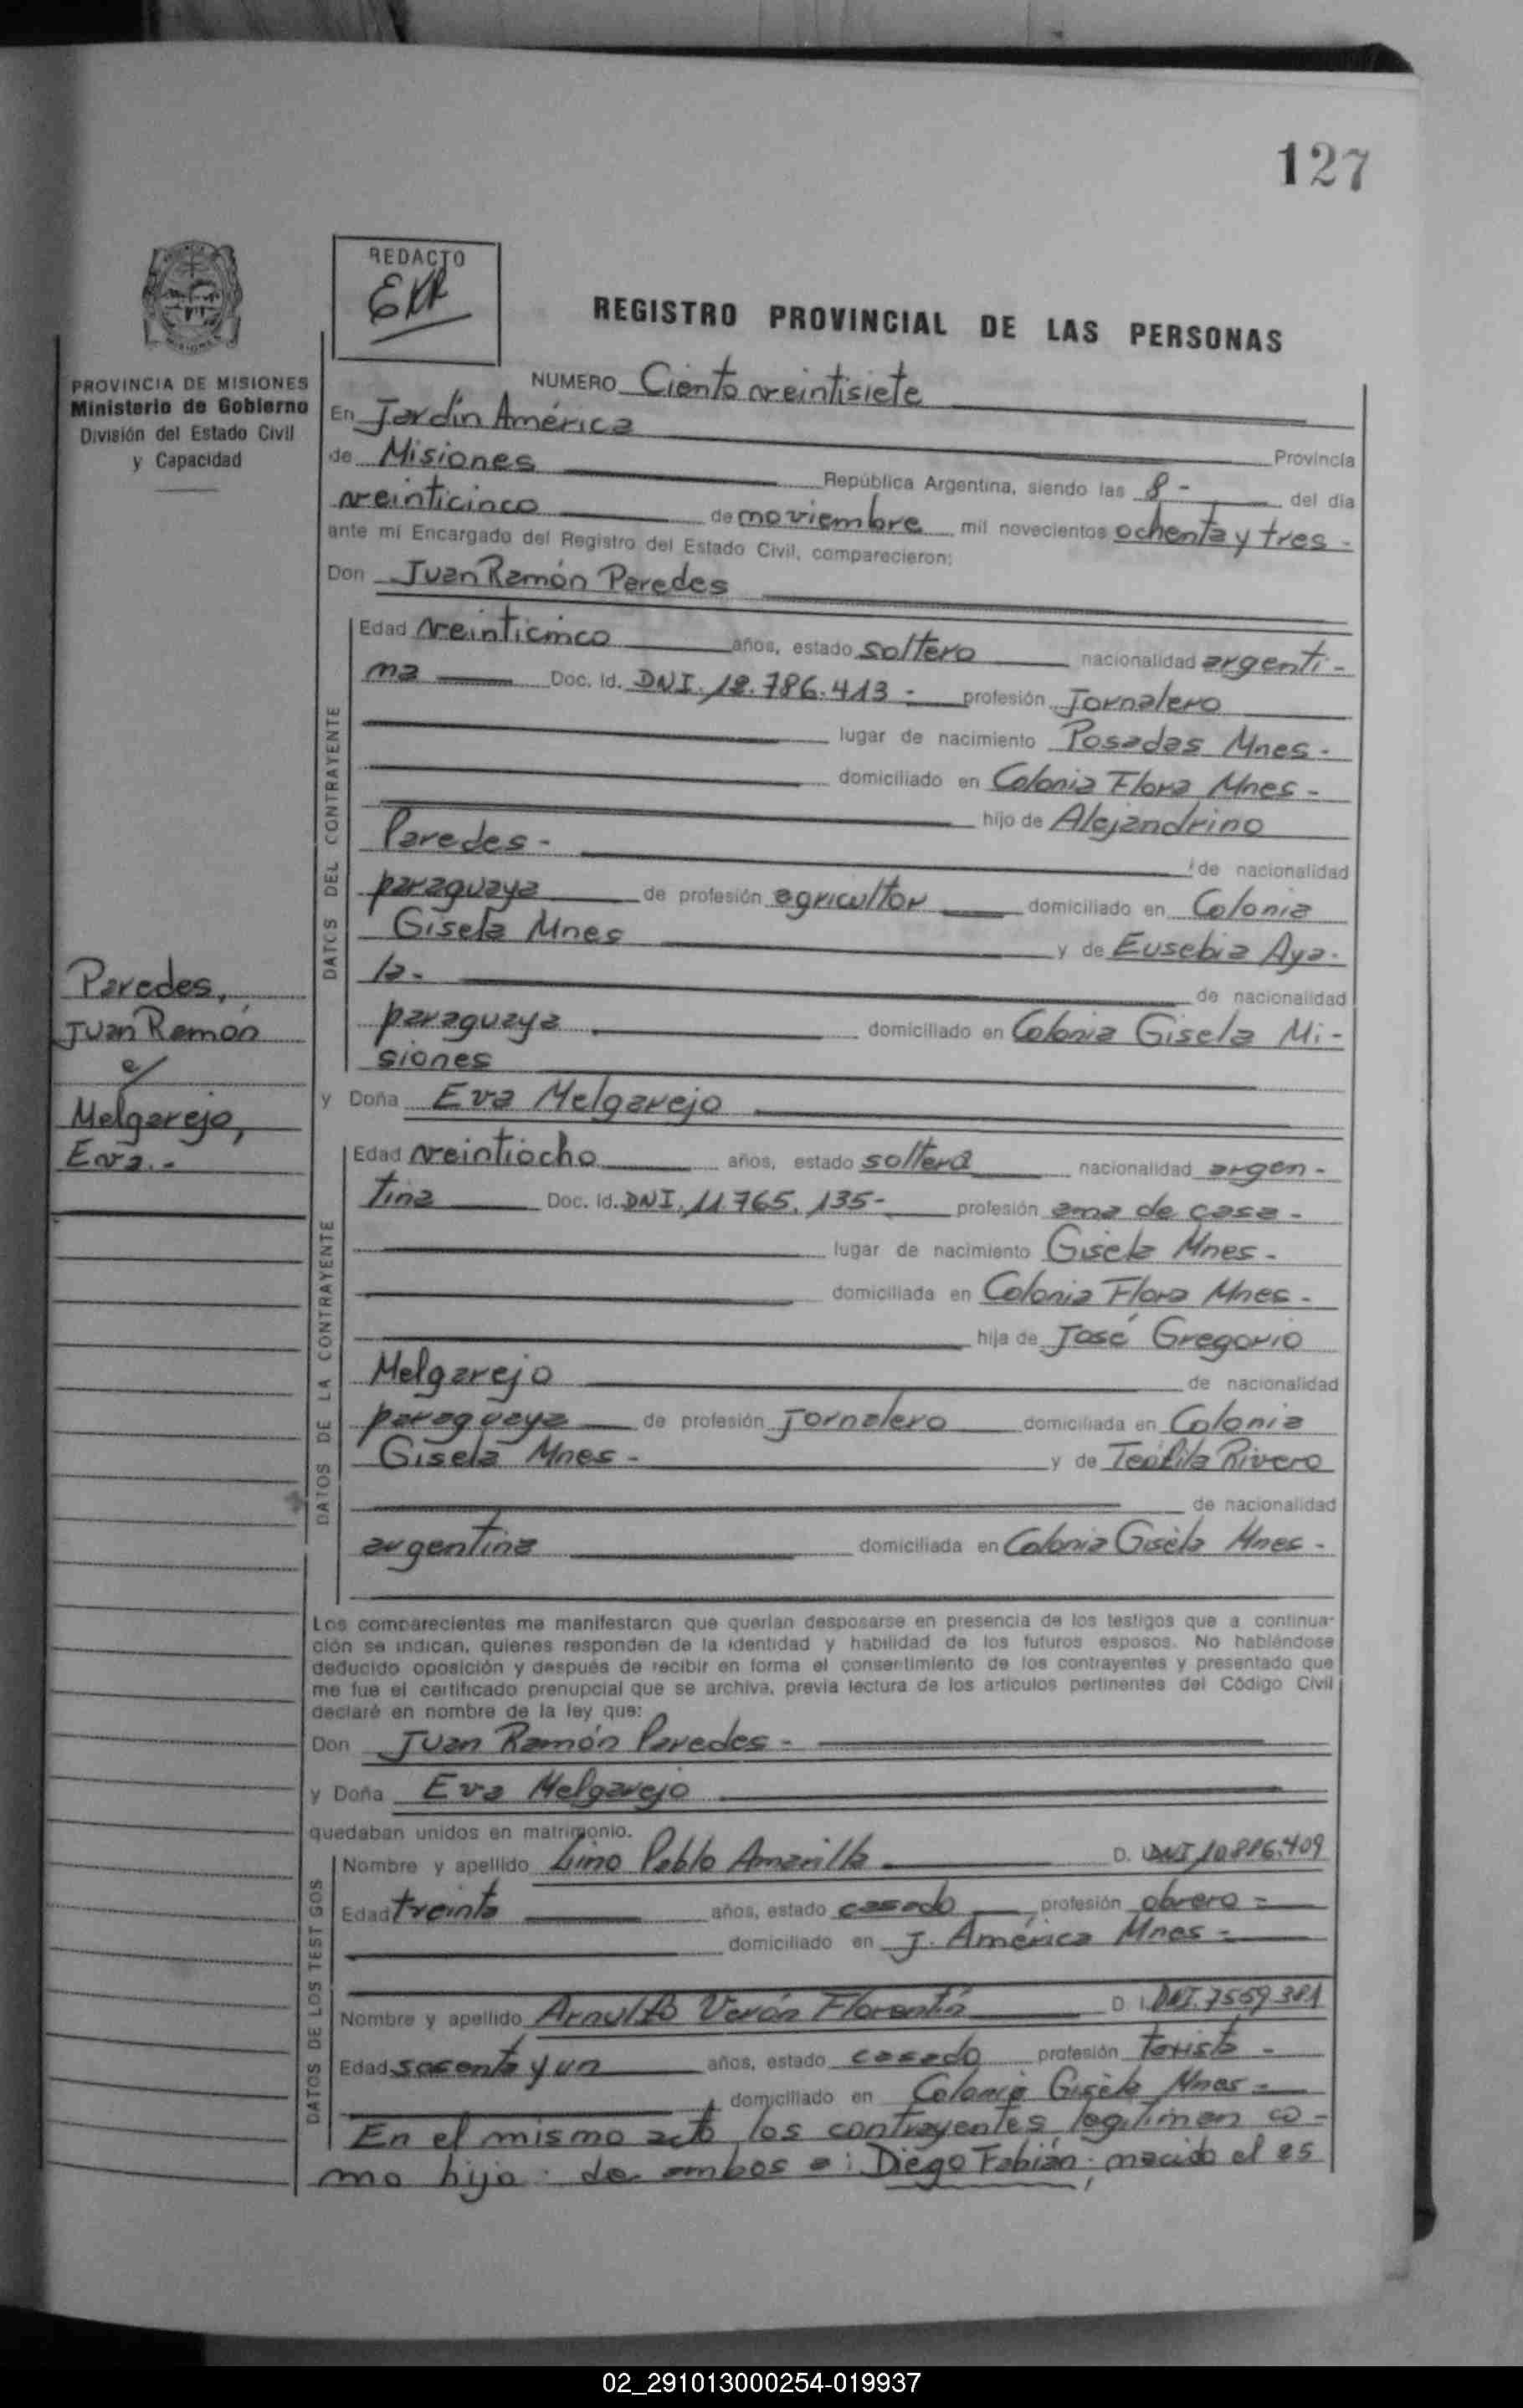 127
REDACTO
REGISTRO PROVINCIAL DE LAS PERSONAS
PROVINCIA DE MISIONES
Ministerio de Gobierno
División del Estado Civil
y Capacidad
NUMERO Ciento veintisiete
En Jardín América
Provincia
de Misiones República Argentina, siendo las 8 - del día
veinticinco de noviembre mil novecientos ochenta y tres -
ante mí Encargado del Registro del Estado Civil, comparecieron:
Don Juan Ramón Paredes
DATOS DEL CONTRAYENTE
Edad veinticinco años, estado soltero nacionalidad argenti-
na Doc. Id. DNI. 12.786.413 - profesión Jornalero
lugar de nacimiento Posadas Mnes -
domiciliado en Colonia Flora Mnes -
hijo de Alejandrino
Paredes - de nacionalidad
paraguaya de profesión agricultor domiciliado en Colonia
Gisela Mnes y de Eusebia Aya-
la - de nacionalidad
paraguaya domiciliado en Colonia Gisela Mi-
siones
Paredes,
Juan Ramón
c/
Melgarejo,
Eva.-
y Doña Eva Melgarejo
DATOS DE LA CONTRAYENTE
Edad veintiocho años, estado soltera nacionalidad argen-
tina Doc. Id. DNI. 11.765.135- profesión ama de casa -
lugar de nacimiento Gisela Mnes -
domiciliada en Colonia Flora Mnes -
hija de José Gregorio
Melgarejo de nacionalidad
paraguaya de profesión Jornalero domiciliada en Colonia
Gisela Mnes - y de Teófila Rivero
de nacionalidad
argentina domiciliada en Colonia Gisela Mnes -
Los comparecientes me manifestaron que querían desposarse en presencia de los testigos que a continua-
ción se indican, quienes responden de la identidad y habilidad de los futuros esposos. No habiéndose
deducido oposición y después de recibir en forma el consentimiento de los contrayentes y presentado que
me fue el certificado prenupcial que se archiva, previa lectura de los artículos pertinentes del Código Civil
declaré en nombre de la ley que:
Don Juan Ramón Paredes -
y Doña Eva Melgarejo
quedaban unidos en matrimonio.
DATOS DE LOS TESTIGOS
Nombre y apellido Lino Pablo Amarilla D. I. DNI 10.886.409
Edad treinta años, estado casado profesión obrero -
domiciliado en J. América Mnes -
Nombre y apellido Arnulfo Verón Florentín D. I. DNI. 7559381
Edad sesenta y un años, estado casado profesión taxista -
domiciliado en Colonia Gisela Mnes -
En el mismo acto los contrayentes legitiman co-
mo hijo de ambos a: Diego Fabián, nacido el 25
02_291013000254-019937